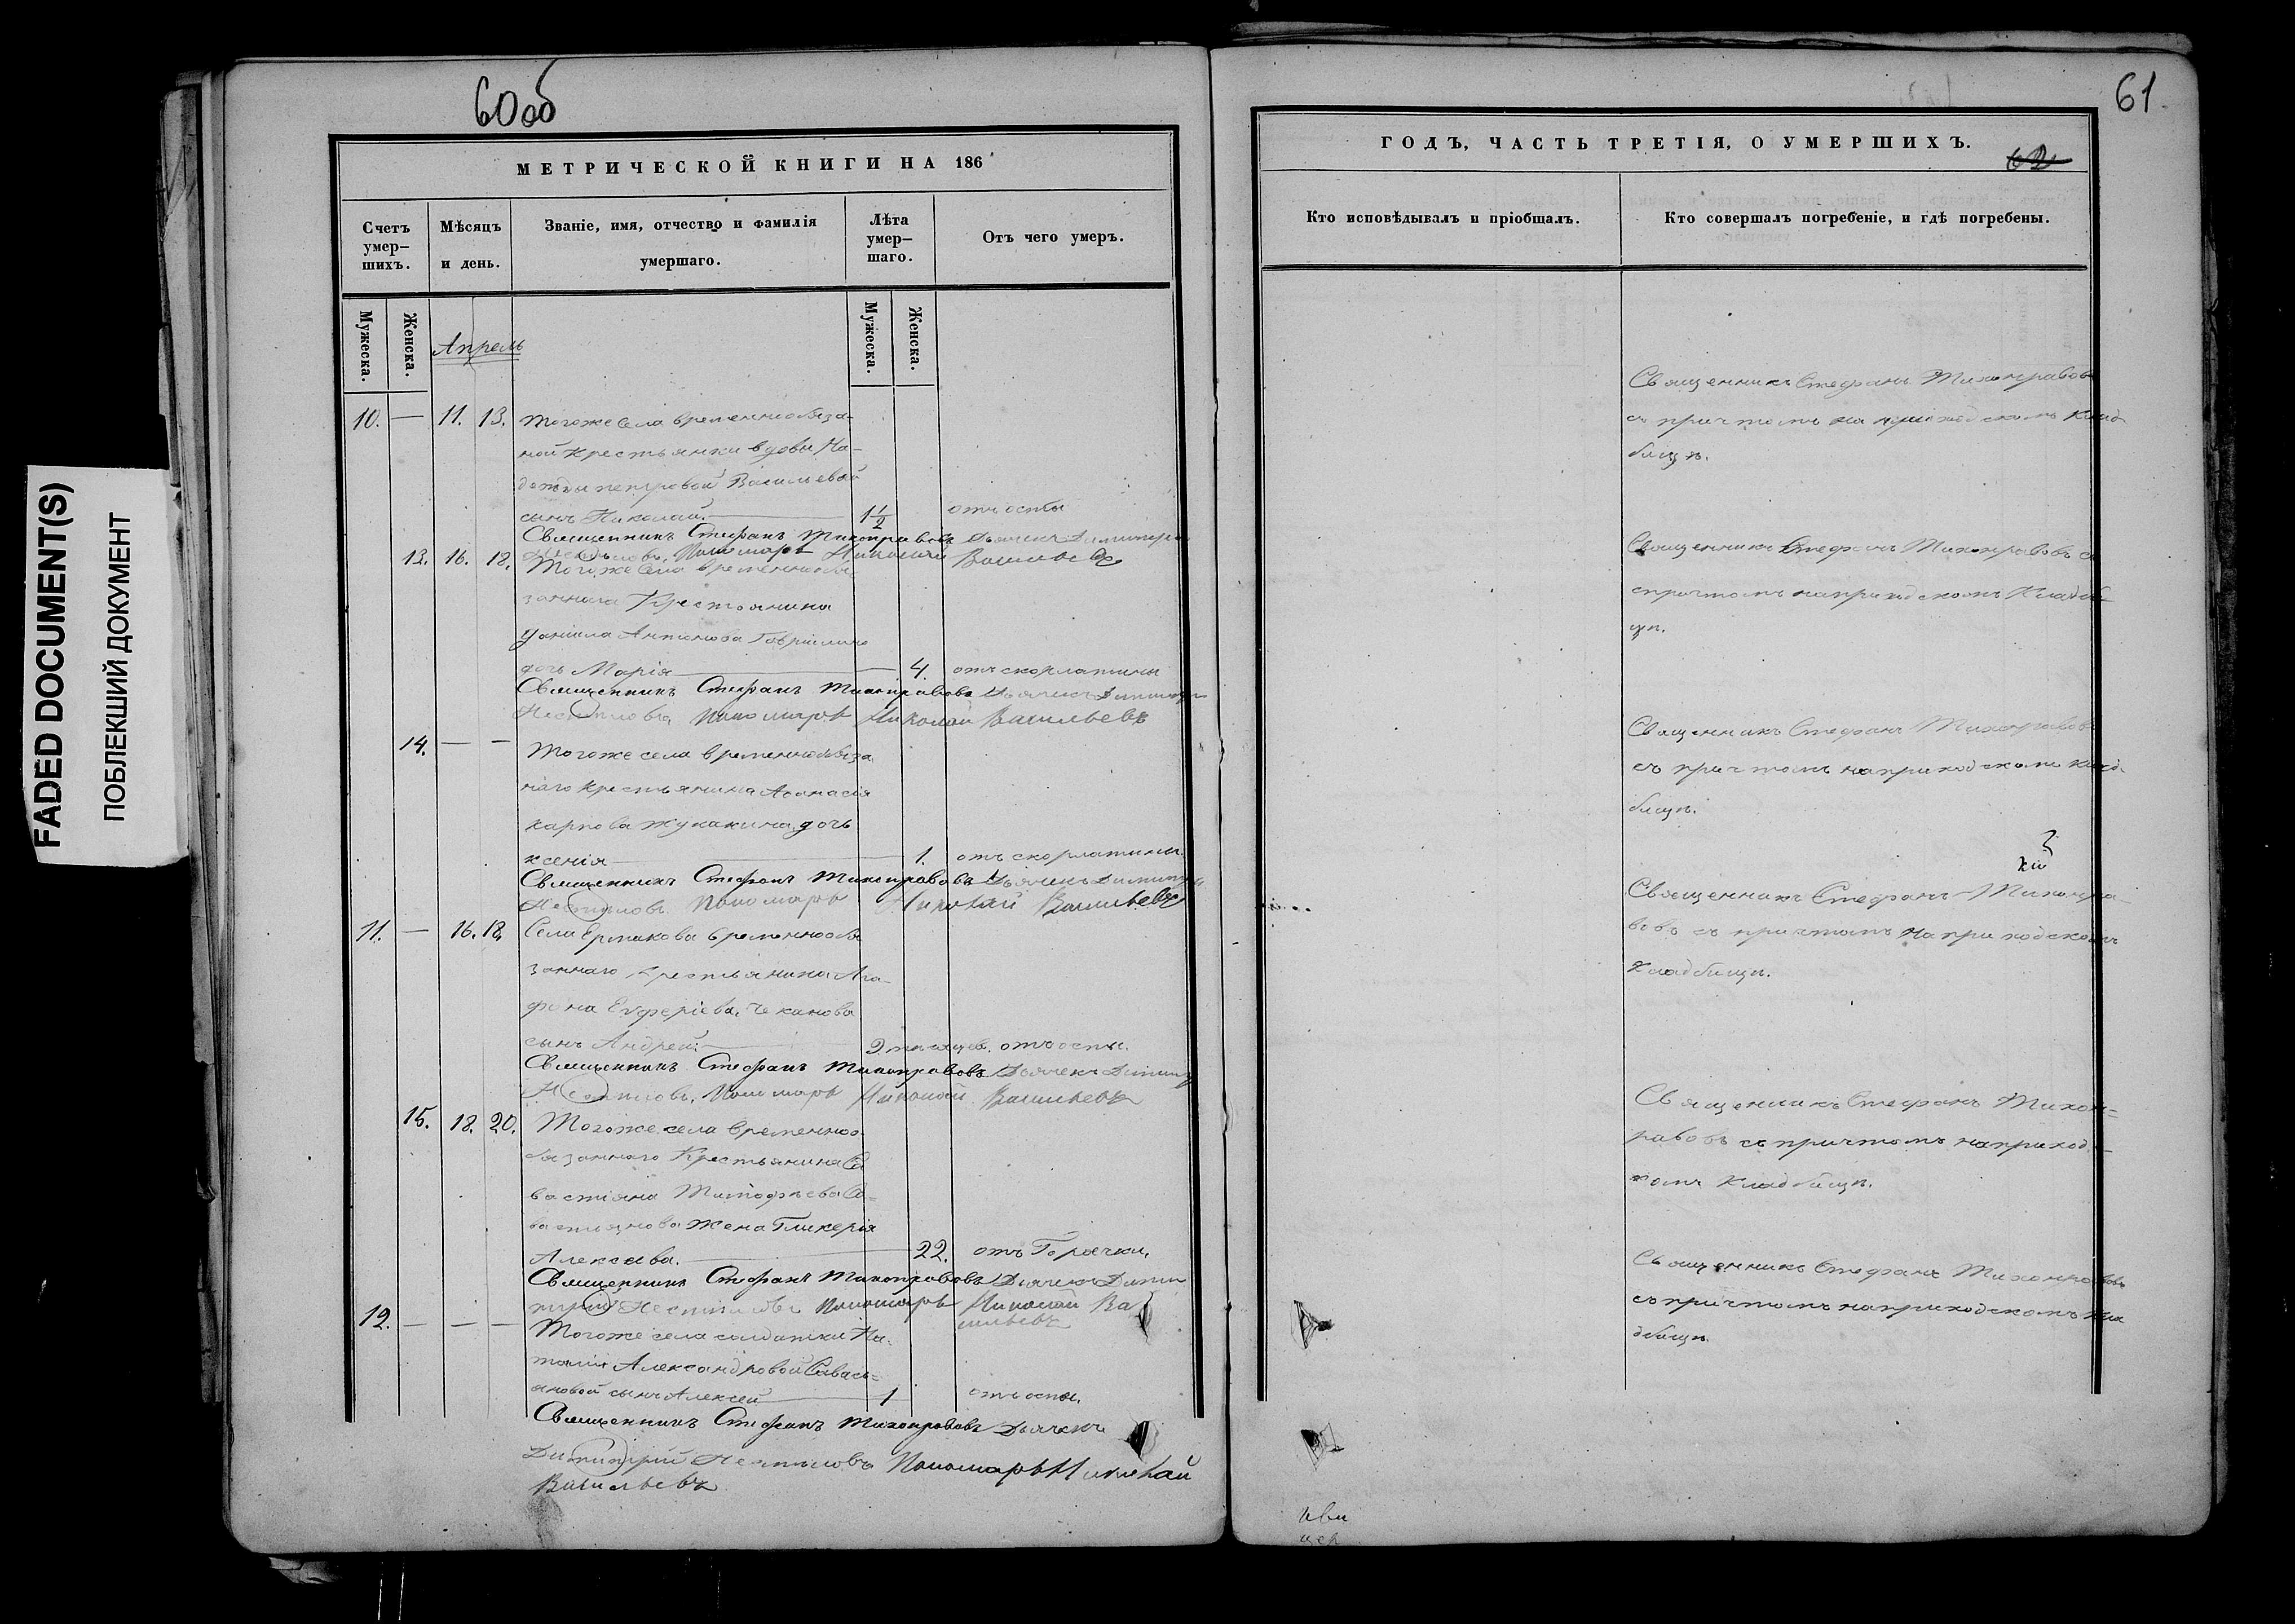 60об
61
62
FADED DOCUMENT(S)
ПОБЛЕКШИЙ ДОКУМЕНТ
МЕТРИЧЕСКОЙ КНИГИ НА 186
Счетъ умер-шихъ.
Мѣсяцъ и день.
Званіе, имя, отчество и фамилія умершаго.
Лѣта умер-шаго.
Отъ чего умеръ.
Мужеска.
Женска.
Мужеска.
Женска.
Апрель
10. — 11. 13. Тогоже села временнообяза-
ной крестьянки вдовы На-
дежды Петровой Васильевой
сынъ Николай. 1½ отъ оспы
Священникъ Стефанъ Тихонравовъ Дьячекъ Димитрій
Пономарь Николай Васильевъ
13. 16. 18. Тогоже села временнообя-
заннаго Крестьянина
Даніила Антонова
дочь Марія — 4. отъ скорлатины
Священникъ Стефанъ Тихонравовъ Дьячекъ Димитрій
Пономарь Николай Васильевъ
14. — — Тогоже села временнообяза
наго крестьянина Афанасія
Карпова дочь
Ксенія 1. отъ скорлатины.
Священникъ Стефанъ Тихонравовъ Дьячекъ Димитрій
Пономарь Николай Васильевъ
11. — 16. 18. Села Ермакова временнообя
заннаго крестьянина Ага-
фона Чеканова
сынъ Андрей 9 месяцев. отъ оспы.
Священникъ Стефанъ Тихонравовъ Дьячекъ
Пономарь Николай Васильевъ
15. 18. 20. Тогоже села временноо
бязаннаго Крестьянина Са
вастіяна Са-
вастіянова жена Гликерія
Алексеева. 22. отъ Горячки.
Священникъ Стефанъ Тихонравовъ Дьячекъ Дими
трій Пономарь Николай Ва
сильевъ
12. — — — Тогоже села солдатки На-
таліи Александровой Савась-
яновой сынъ Алексей 1 отъ оспы.
Священникъ Стефанъ Тихонравовъ Дьячекъ
Димитрій Пономарь Николай
Васильевъ
ГОДЪ, ЧАСТЬ ТРЕТІЯ, О УМЕРШИХЪ.
Кто исповѣдывалъ и пріобщалъ.
Кто совершалъ погребеніе, и гдѣ погребены.
Священникъ Стефанъ Тихонравовъ
съ причтомъ на приходскомъ клад
бищѣ.
Священникъ Стефанъ Тихонравовъ с
спричтомъ наприходскомъ Кладби-
щѣ.
Священникъ Стефанъ Тихонравовъ
съ причтомъ наприходскомъ клад-
бищѣ.
Священникъ Стефанъ Тихонра-
вовъ съ причтомъ на приходскомъ
Кладбищѣ.
Священникъ Стефанъ Тихон=
равовъ съ причтомъ наприход-
комъ Кладбищѣ.
Священникъ Стефанъ Тихонравовъ
съ причтомъ наприходскомъ Кла
дбищѣ.